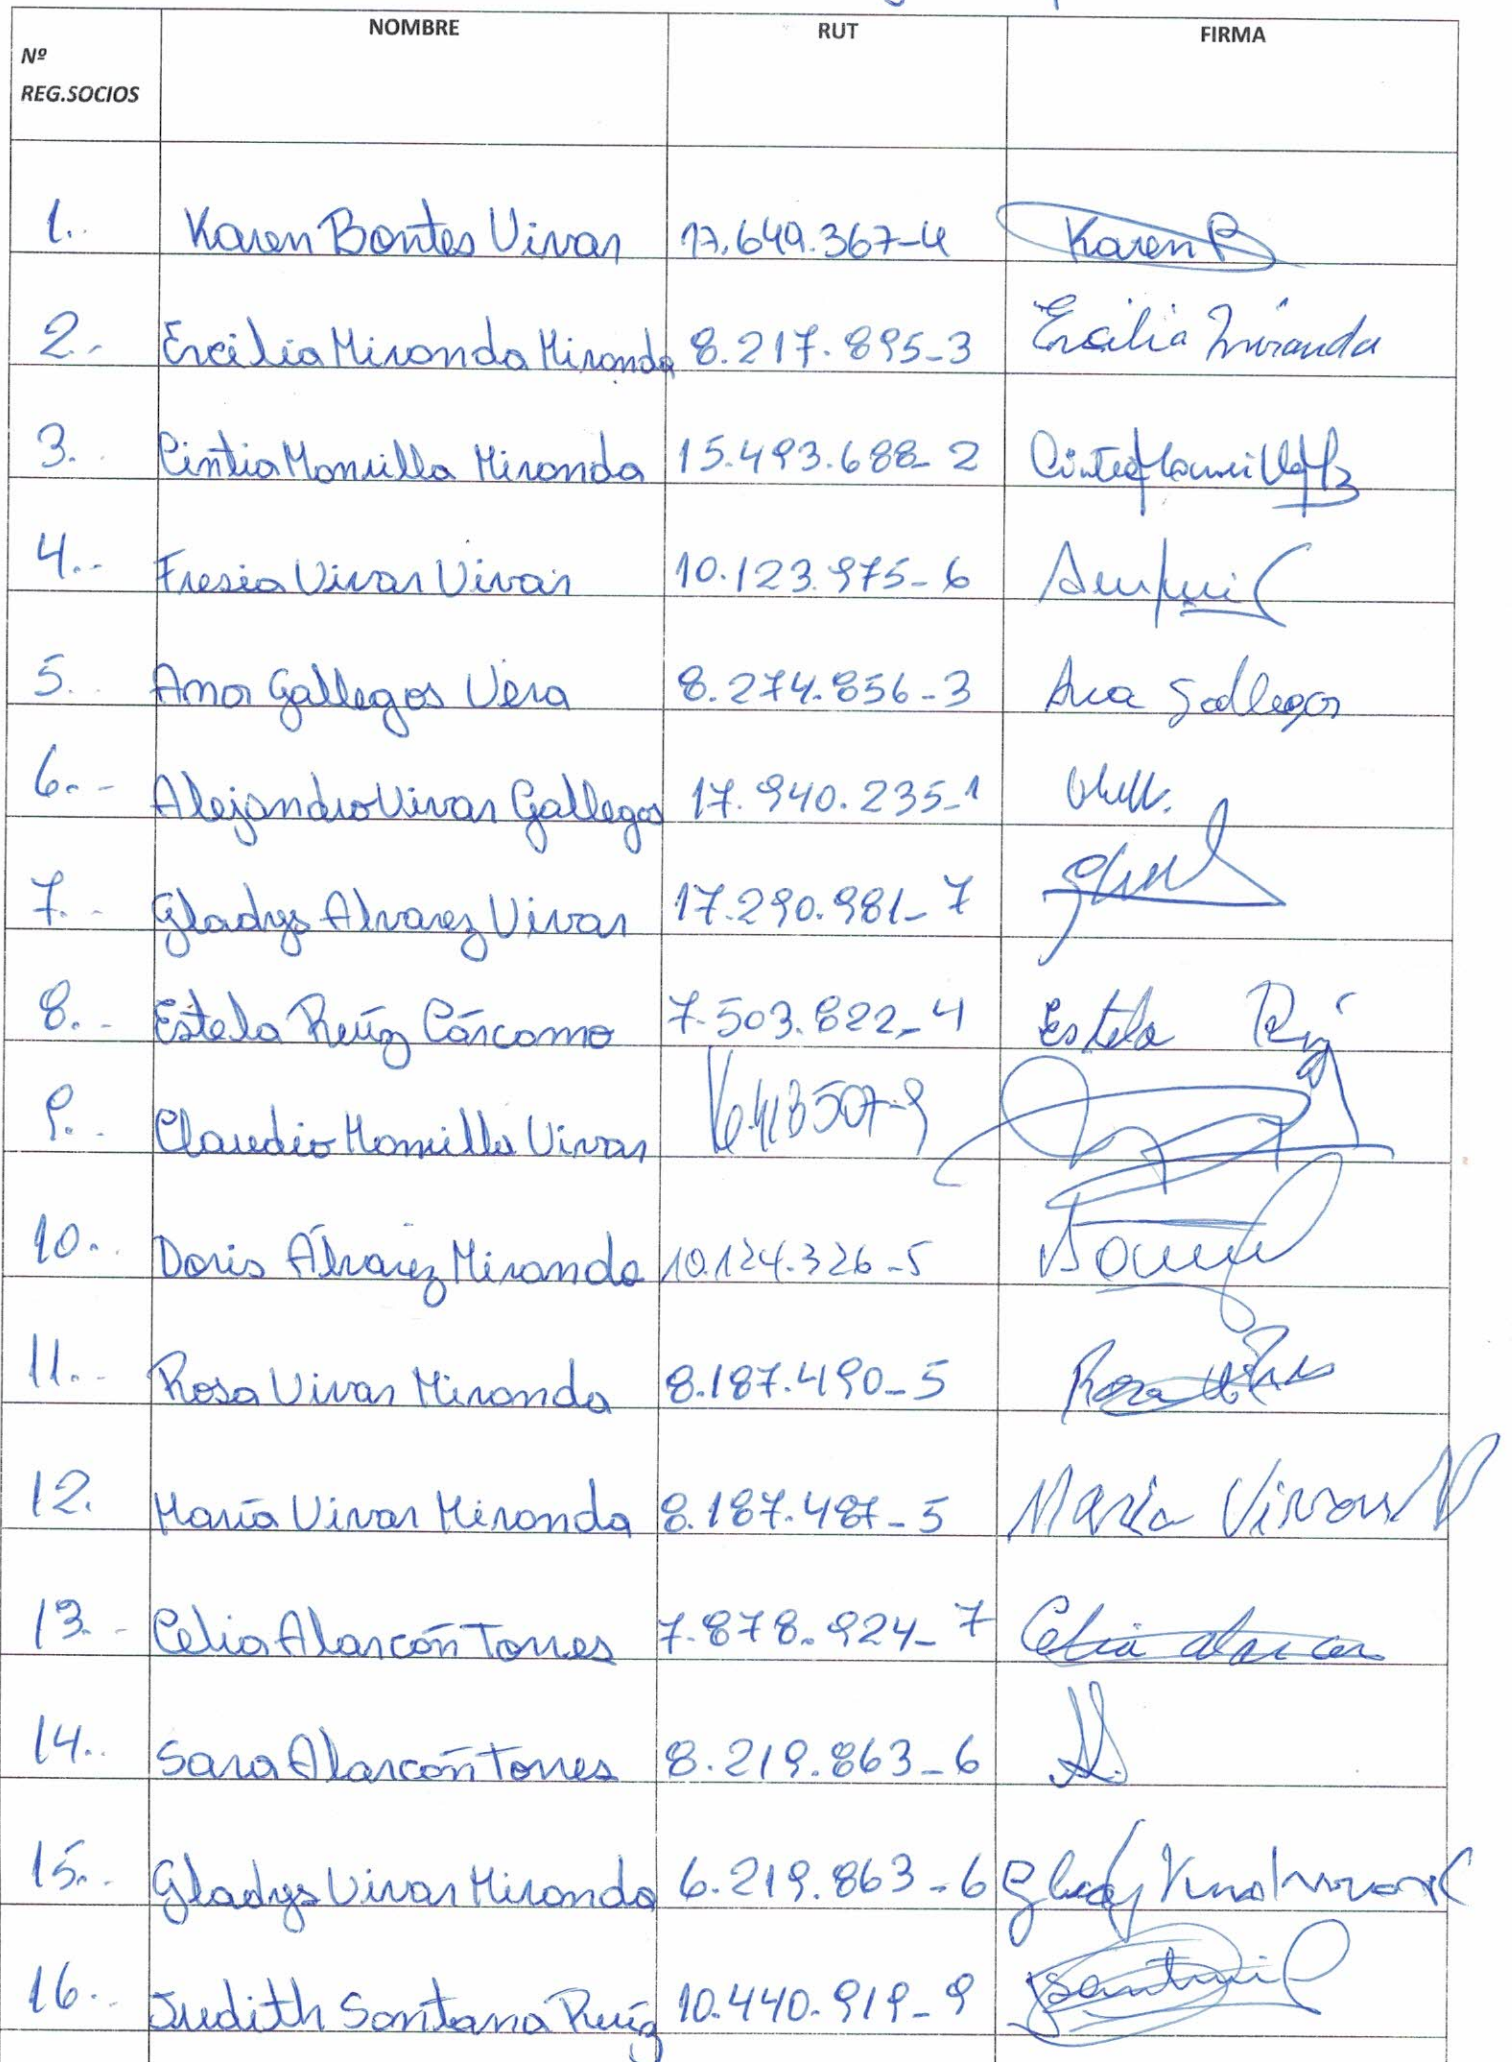 Nº REG.SOCIOS NOMBRE RUT FIRMA
1.. Karen Bontes Vivar 17.649.367-4 Karen B
2.- Ercilia Miranda Miranda 8.217.895-3 Ercilia Miranda
3.. Cintia Mansilla Miranda 15.493.688-2
4.. Fresia Vivar Vivar 10.123.975-6
5.. Ana Gallegos Vera 8.274.856-3 Ana Gallegos
6.- Alejandro Vivar Gallegos 17.940.235-1
7.- Gladys Alvarez Vivar 17.290.981-7
8.- Estela Ruíz Cárcamo 7.503.822-4 Estela
9.. Claudio Mansilla Vivar 16.413507-9
10.. Doris Álvarez Miranda 10.124.326-5
11.. Rosa Vivar Miranda 8.187.490-5 Rosa
12. María Vivar Miranda 8.187.487-5 Maria Vivar
13.- Celia Alarcón Torres 7.878.924-7 Celia alarcon
14.. Sara Alarcón Torres 8.219.863-6
15.. Gladys Vivar Miranda 6.219.863-6
16.. Judith Santana Ruíz 10.440.919-9